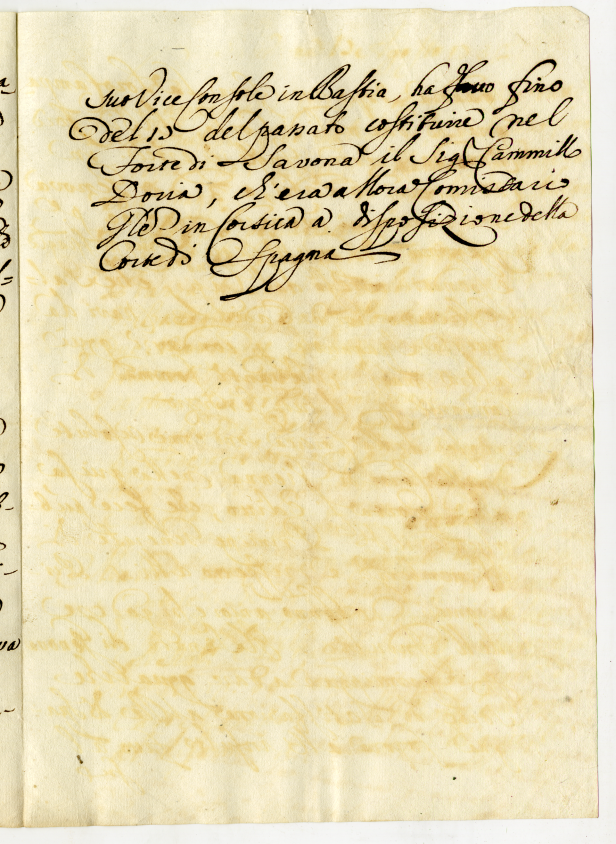 suo Vice Console in Bastia, ha fino
del 13 del passato costituire nel
Forte di Savona il Sig.r Cammillo
Doria, ch'era allora Comissari
Gle in Corsica a disposizione della
Corte di Spagna